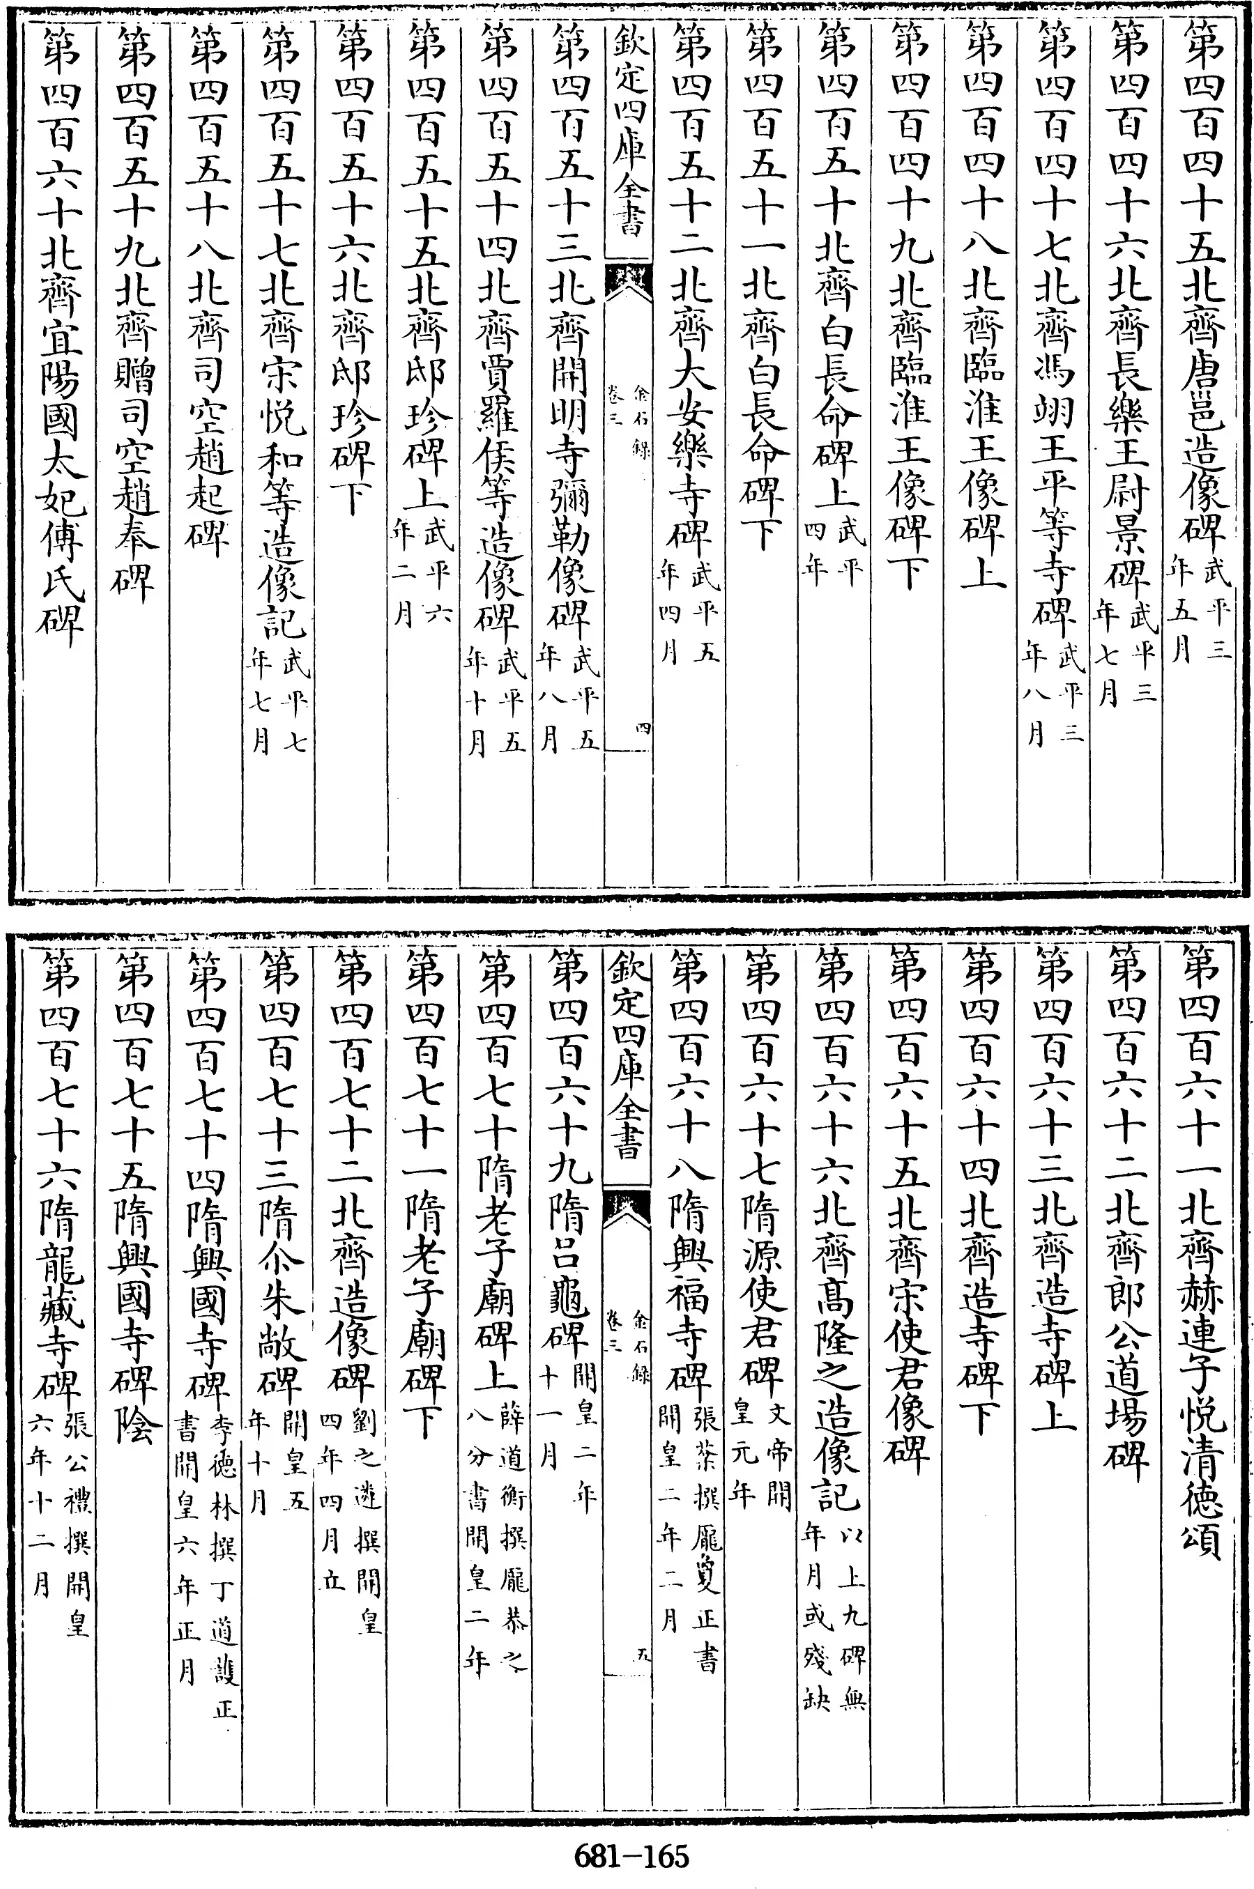 第四百四十五北齊唐邕造像碑武平三年五月
第四百四十六北齊長樂王尉景碑武平三年七月
第四百四十七北齊馮翊王平等寺碑武平三年八月
第四百四十八北齊臨淮王像碑上
第四百四十九北齊臨淮王像碑下
第四百五十北齊白長命碑上武平四年
第四百五十一北齊白長命碑下
第四百五十二北齊大安樂寺碑武平五年四月
欽定四庫全書
金石錄
卷三
四
第四百五十三北齊開明寺彌勒像碑武平五年八月
第四百五十四北齊賈羅侯等造像碑武平五年十月
第四百五十五北齊邸珍碑上武平六年二月
第四百五十六北齊邸珍碑下
第四百五十七北齊宋悅和等造像記武平七年七月
第四百五十八北齊司空趙起碑
第四百五十九北齊贈司空趙奉碑
第四百六十北齊宜陽國太妃傅氏碑
第四百六十一北齊赫連子悅清德頌
第四百六十二北齊郎公道場碑
第四百六十三北齊造寺碑上
第四百六十四北齊造寺碑下
第四百六十五北齊宋使君像碑
第四百六十六北齊髙隆之造像記以上九碑無年月或殘缺
第四百六十七隋源使君碑文帝開皇元年
第四百六十八隋興福寺碑張撰龐夐正書開皇二年二月
欽定四庫全書
金石錄
卷三
五
第四百六十九隋呂龜碑開皇二年十一月
第四百七十隋老子廟碑上薛道衡撰龐恭之八分書開皇二年
第四百七十一隋老子廟碑下
第四百七十二北齊造像碑劉之遴撰開皇四年四月立
第四百七十三隋尒朱敞碑開皇五年十月
第四百七十四隋興國寺碑李德林撰丁道護正書開皇六年正月
第四百七十五隋興國寺碑陰
第四百七十六隋龍藏寺碑張公禮撰開皇六年十二月
681-165